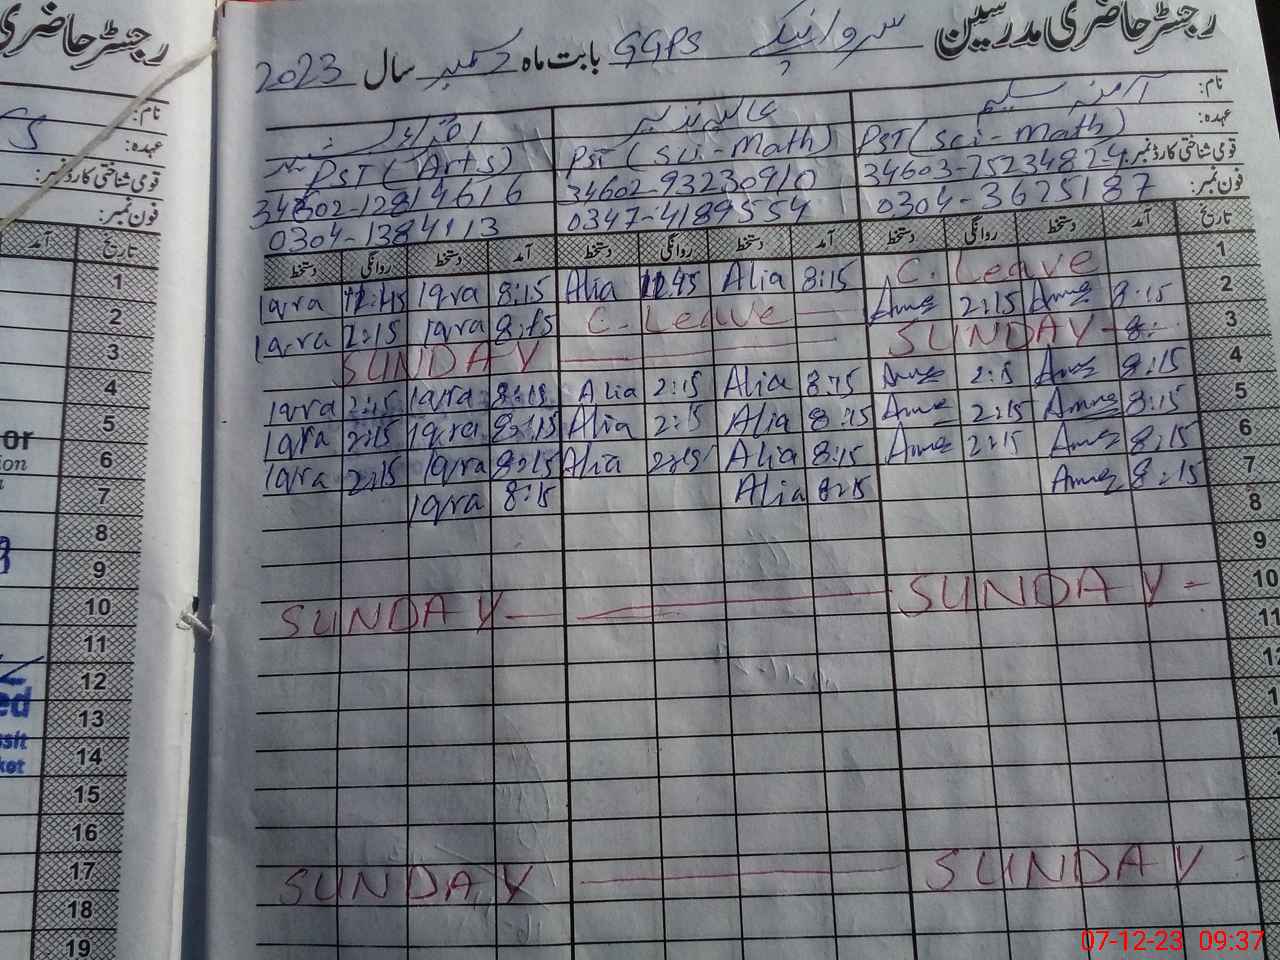 رجسٹر حاضری مدرسین GGPS بابت ماہ دسمبر سال 2023
رجسٹر حاضری
نام:
نام: آمنہ سلیم
عہدہ:
عہدہ: PST (Sci-Math) PST (Sci-Math) PST (Arts)
قومی شناختی کارڈ نمبر:
قومی شناختی کارڈ نمبر: 34603-7523482-4 34602-93230910
فون نمبر:
فون نمبر: 0304-3625187 0347-4189554 0304-1384113
آمد تاریخ
دستخط روانگی دستخط آمد دستخط روانگی دستخط آمد دستخط روانگی دستخط آمد تاریخ
1 Iqra 11:45 Iqra 8:15 Alia 11:45 Alia 8:15 C. Leave 1
2 Iqra 2:15 Iqra 8:15 C. Leave Amna 2:15 Amna 8:15 2
3 SUNDAY SUNDAY 3
4 Iqra 2:15 Iqra 8:15 Alia 2:15 Alia 8:15 Amna 2:15 Amna 8:15 4
5 Iqra 2:15 Iqra 8:15 Alia 2:15 Alia 8:15 Amna 2:15 Amna 8:15 5
6 Iqra 2:15 Iqra 8:15 Alia 2:15 Alia 8:15 Amna 2:15 Amna 8:15 6
7 Iqra 8:15 Alia 8:15 Amna 8:15 7
8 8
9 9
10 SUNDAY SUNDAY 10
11 11
12
13
14
15
16
17 SUNDAY SUNDAY
18
19
07-12-23 09:37